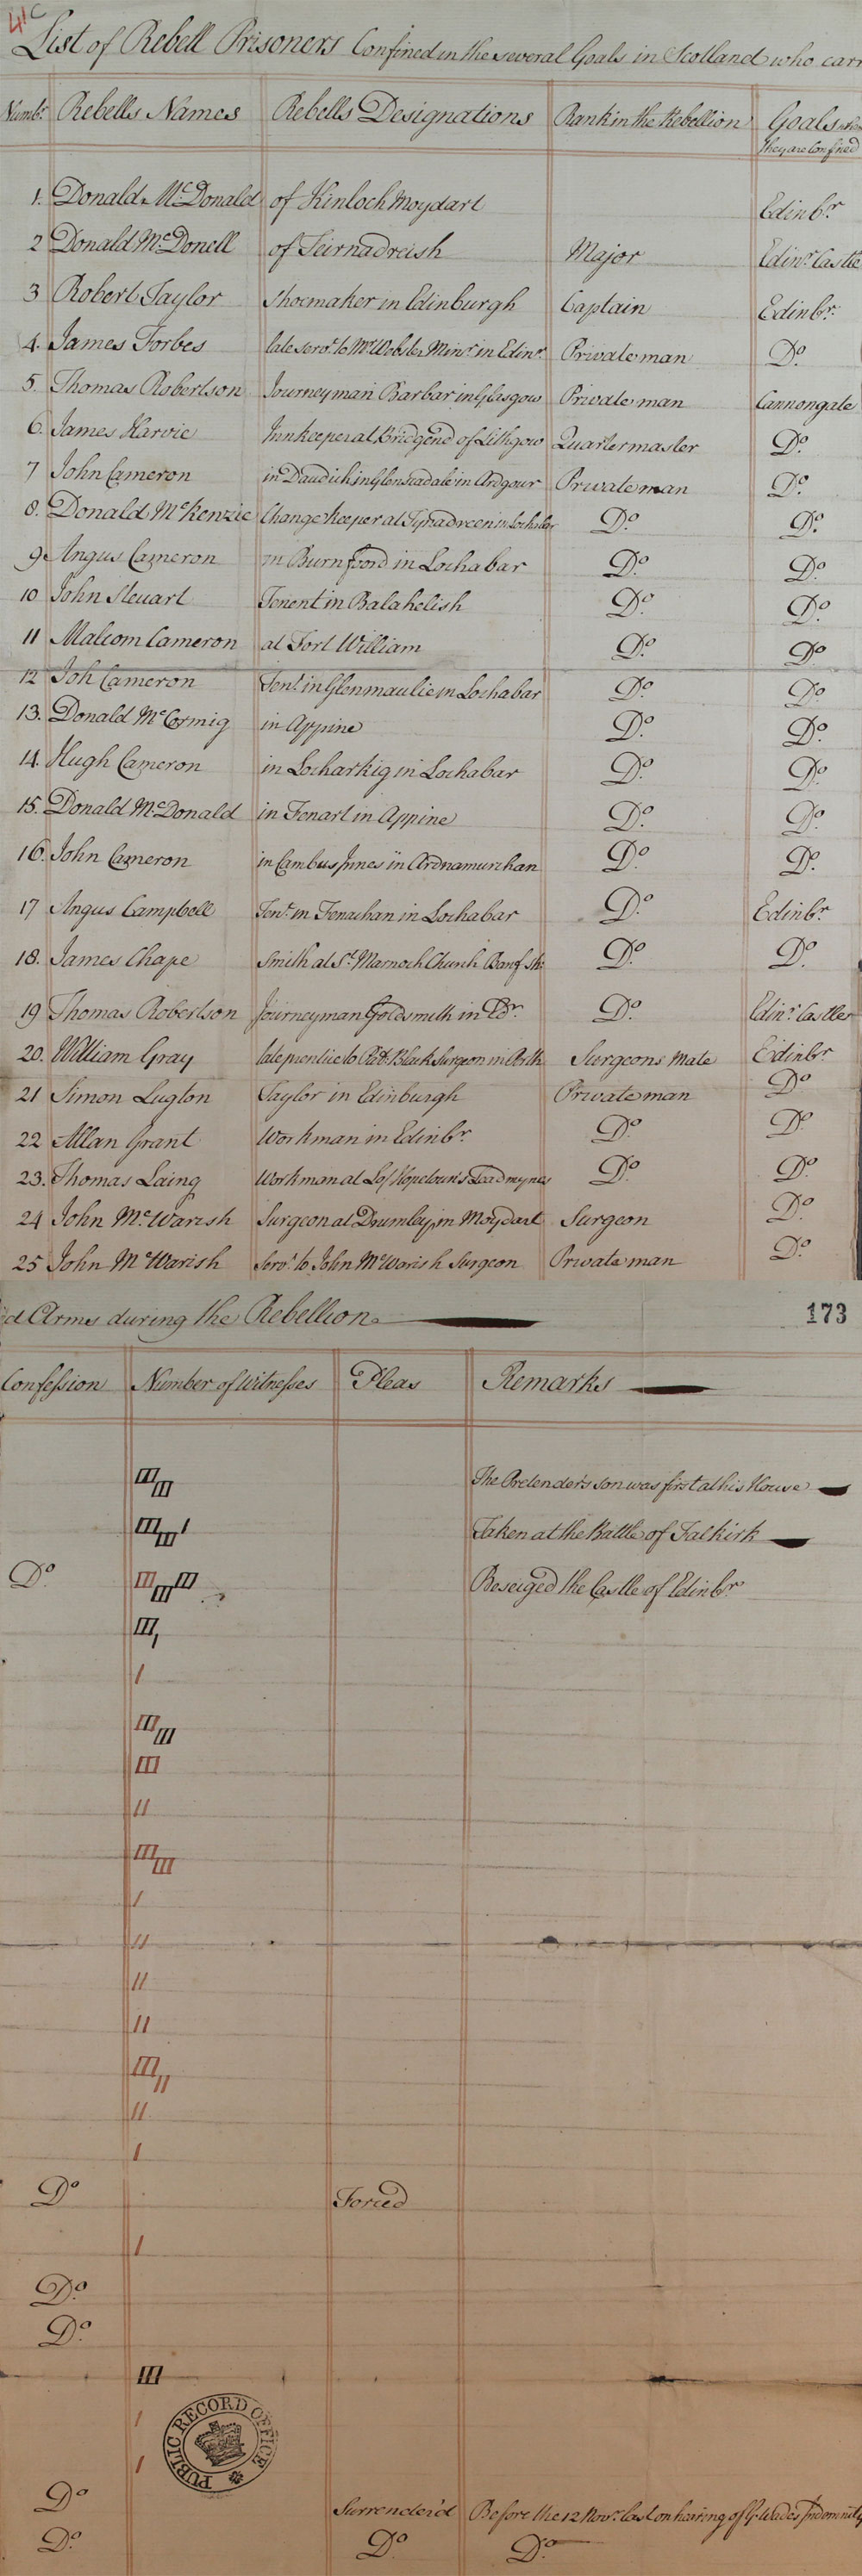 41c
List of Rebell Prisoners Confined in the several Goals in Scotland who carr
Numbr. Rebells Names Rebells Designations Rank in the Rebellion Goals where
they are Confined
1. Donald McDonald of Kinloch Moydart Edinbr
2 Donald McDonell of Teirnadreish Major Edinr. Castle
3 Robert Taylor Shoemaker in Edinburgh Captain Edinbr.
4. James Forbes late servt. to Mr Webster Minr. in Edinr. Private man Do.
5. Thomas Robertson Journeyman Barbar in Glasgow Private man Cannongate
6. James Harvie Innkeeper at Bridgend of Lithgow Quartermaster Do.
7 John Cameron in Glenscadale in Ardgour Private man Do.
8. Donald McKenzie Change keeper at in Lochabar Do. Do.
9 Angus Cameron in Burnfoord in Lochabar Do. Do.
10 John Steuart Tenent in Balahelish Do. Do.
11 Malcom Cameron at Fort William Do. Do.
12 Joh Cameron Tent. in Glenmaulie in Lochabar Do. Do.
13. Donald McCormig in Appine Do. Do.
14. Hugh Cameron in Locharkig in Lochabar Do. Do.
15. Donald McDonald in Fenart in Appine Do. Do.
16. John Cameron in Cambus Innes in Ardnamurchan Do. Do.
17 Angus Campbell Tent. in Fenachan in Lochabar Do. Edinbr.
18. James Chape Smith at St. Marnoch Church Banf sh: Do. Do.
19 Thomas Robertson Journeyman Goldsmith in Edr. Do. Edinr. Castle
20. William Gray late prentice to Black Surgeon in Perth Surgeons Mate Edinbr
21 Simon Lugton Taylor in Edinburgh Private man Do.
22 Allan Grant Workman in Edinbr. Do. Do.
23. Thomas Laing Workman at Hopetoun's Leadmynes Do. Do.
24 John McWarish Surgeon at in Moydart Surgeon Do.
25 John McWarish Servt. to John McWarish Surgeon Private man Do.
d Arms during the Rebellion 173
Confession Number of Witnesses Pleas Remarks
III III The Pretender's son was first at his House
III III I Taken at the Battle of Falkirk
Do. III III III Beseiged the Castle of Edinbr
III I
I
III III
III
II
III III
I
II
II
II
III II
II
I
Do Forced
I
Do.
Do.
III
I
I
Do Surrender'd Before the 12 Novr. last on hearing of G. Wade's Indemnity
Do. Do Do.
PUBLIC RECORD OFFICE